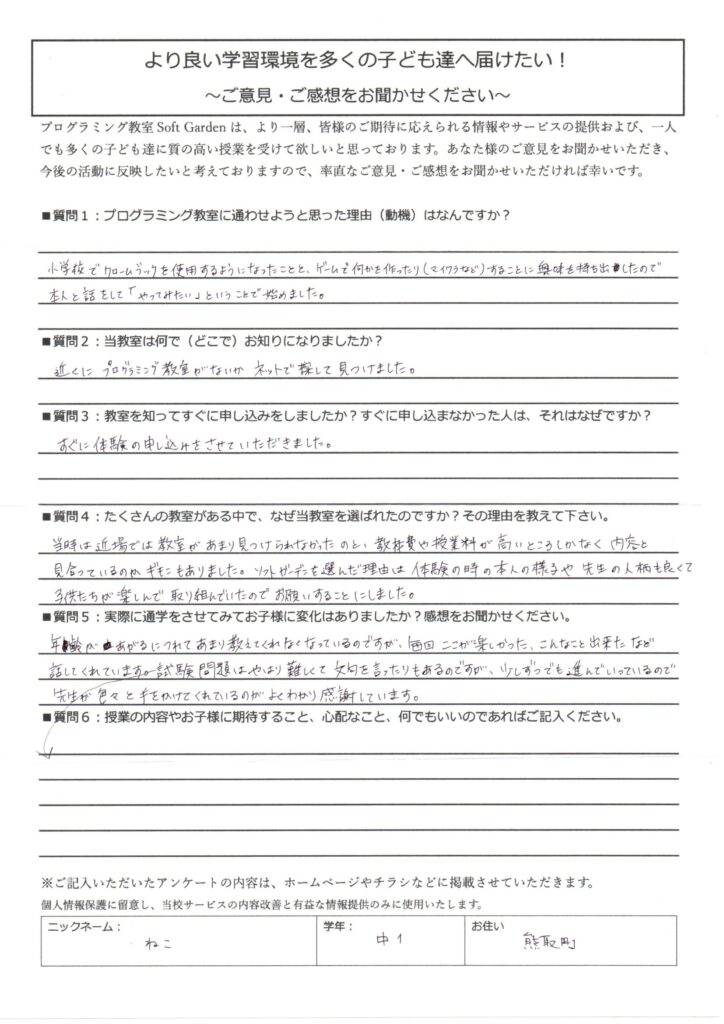 より良い学習環境を多くの子ども達へ届けたい！
～ご意見・ご感想をお聞かせください～
プログラミング教室 Soft Garden は、より一層、皆様のご期待に応えられる情報やサービスの提供および、一人
でも多くの子ども達に質の高い授業を受けて欲しいと思っております。あなた様のご意見をお聞かせいただき、
今後の活動に反映したいと考えておりますので、率直なご意見・ご感想をお聞かせいただければ幸いです。
■質問１：プログラミング教室に通わせようと思った理由（動機）はなんですか？
小学校でクロームブックを使用するようになったことと、ゲームで何かを作ったり（マイクラなど）することに興味を持ち出したので
本人と話をして「やってみたい」ということで始めました。
■質問２：当教室は何で（どこで）お知りになりましたか？
近くにプログラミング教室がないかネットで探して見つけました。
■質問３：教室を知ってすぐに申し込みをしましたか？すぐに申し込まなかった人は、それはなぜですか？
すぐに体験の申し込みをさせていただきました。
■質問４：たくさんの教室がある中で、なぜ当教室を選ばれたのですか？その理由を教えて下さい。
当時は近場では教室があまり見つけられなかったのと、教材費や授業料が高いところしかなく内容と
見合っているのかギモンもありました。ソフトガーデンを選んだ理由は体験の時の本人の様子や先生の人柄も良くて
子供たちが楽しんで取り組んでいたのでお願いすることにしました。
■質問５：実際に通学をさせてみてお子様に変化はありましたか？感想をお聞かせください。
年齢があがるにつれてあまり教えてくれなくなっているのですが、毎回ここが楽しかった、こんなこと出来たなど
話してくれています。試験問題はやはり難しくて文句を言ったりもあるのですが、少しずつでも進んでいっているので
先生が色々と手をかけてくれているのがよくわかり感謝しています。
■質問６：授業の内容やお子様に期待すること、心配なこと、何でもいいのであればご記入ください。
※ご記入いただいたアンケートの内容は、ホームページやチラシなどに掲載させていただきます。
個人情報保護に留意し、当校サービスの内容改善と有益な情報提供のみに使用いたします。
ニックネーム： 学年： お住い
ねこ 中1 熊取町